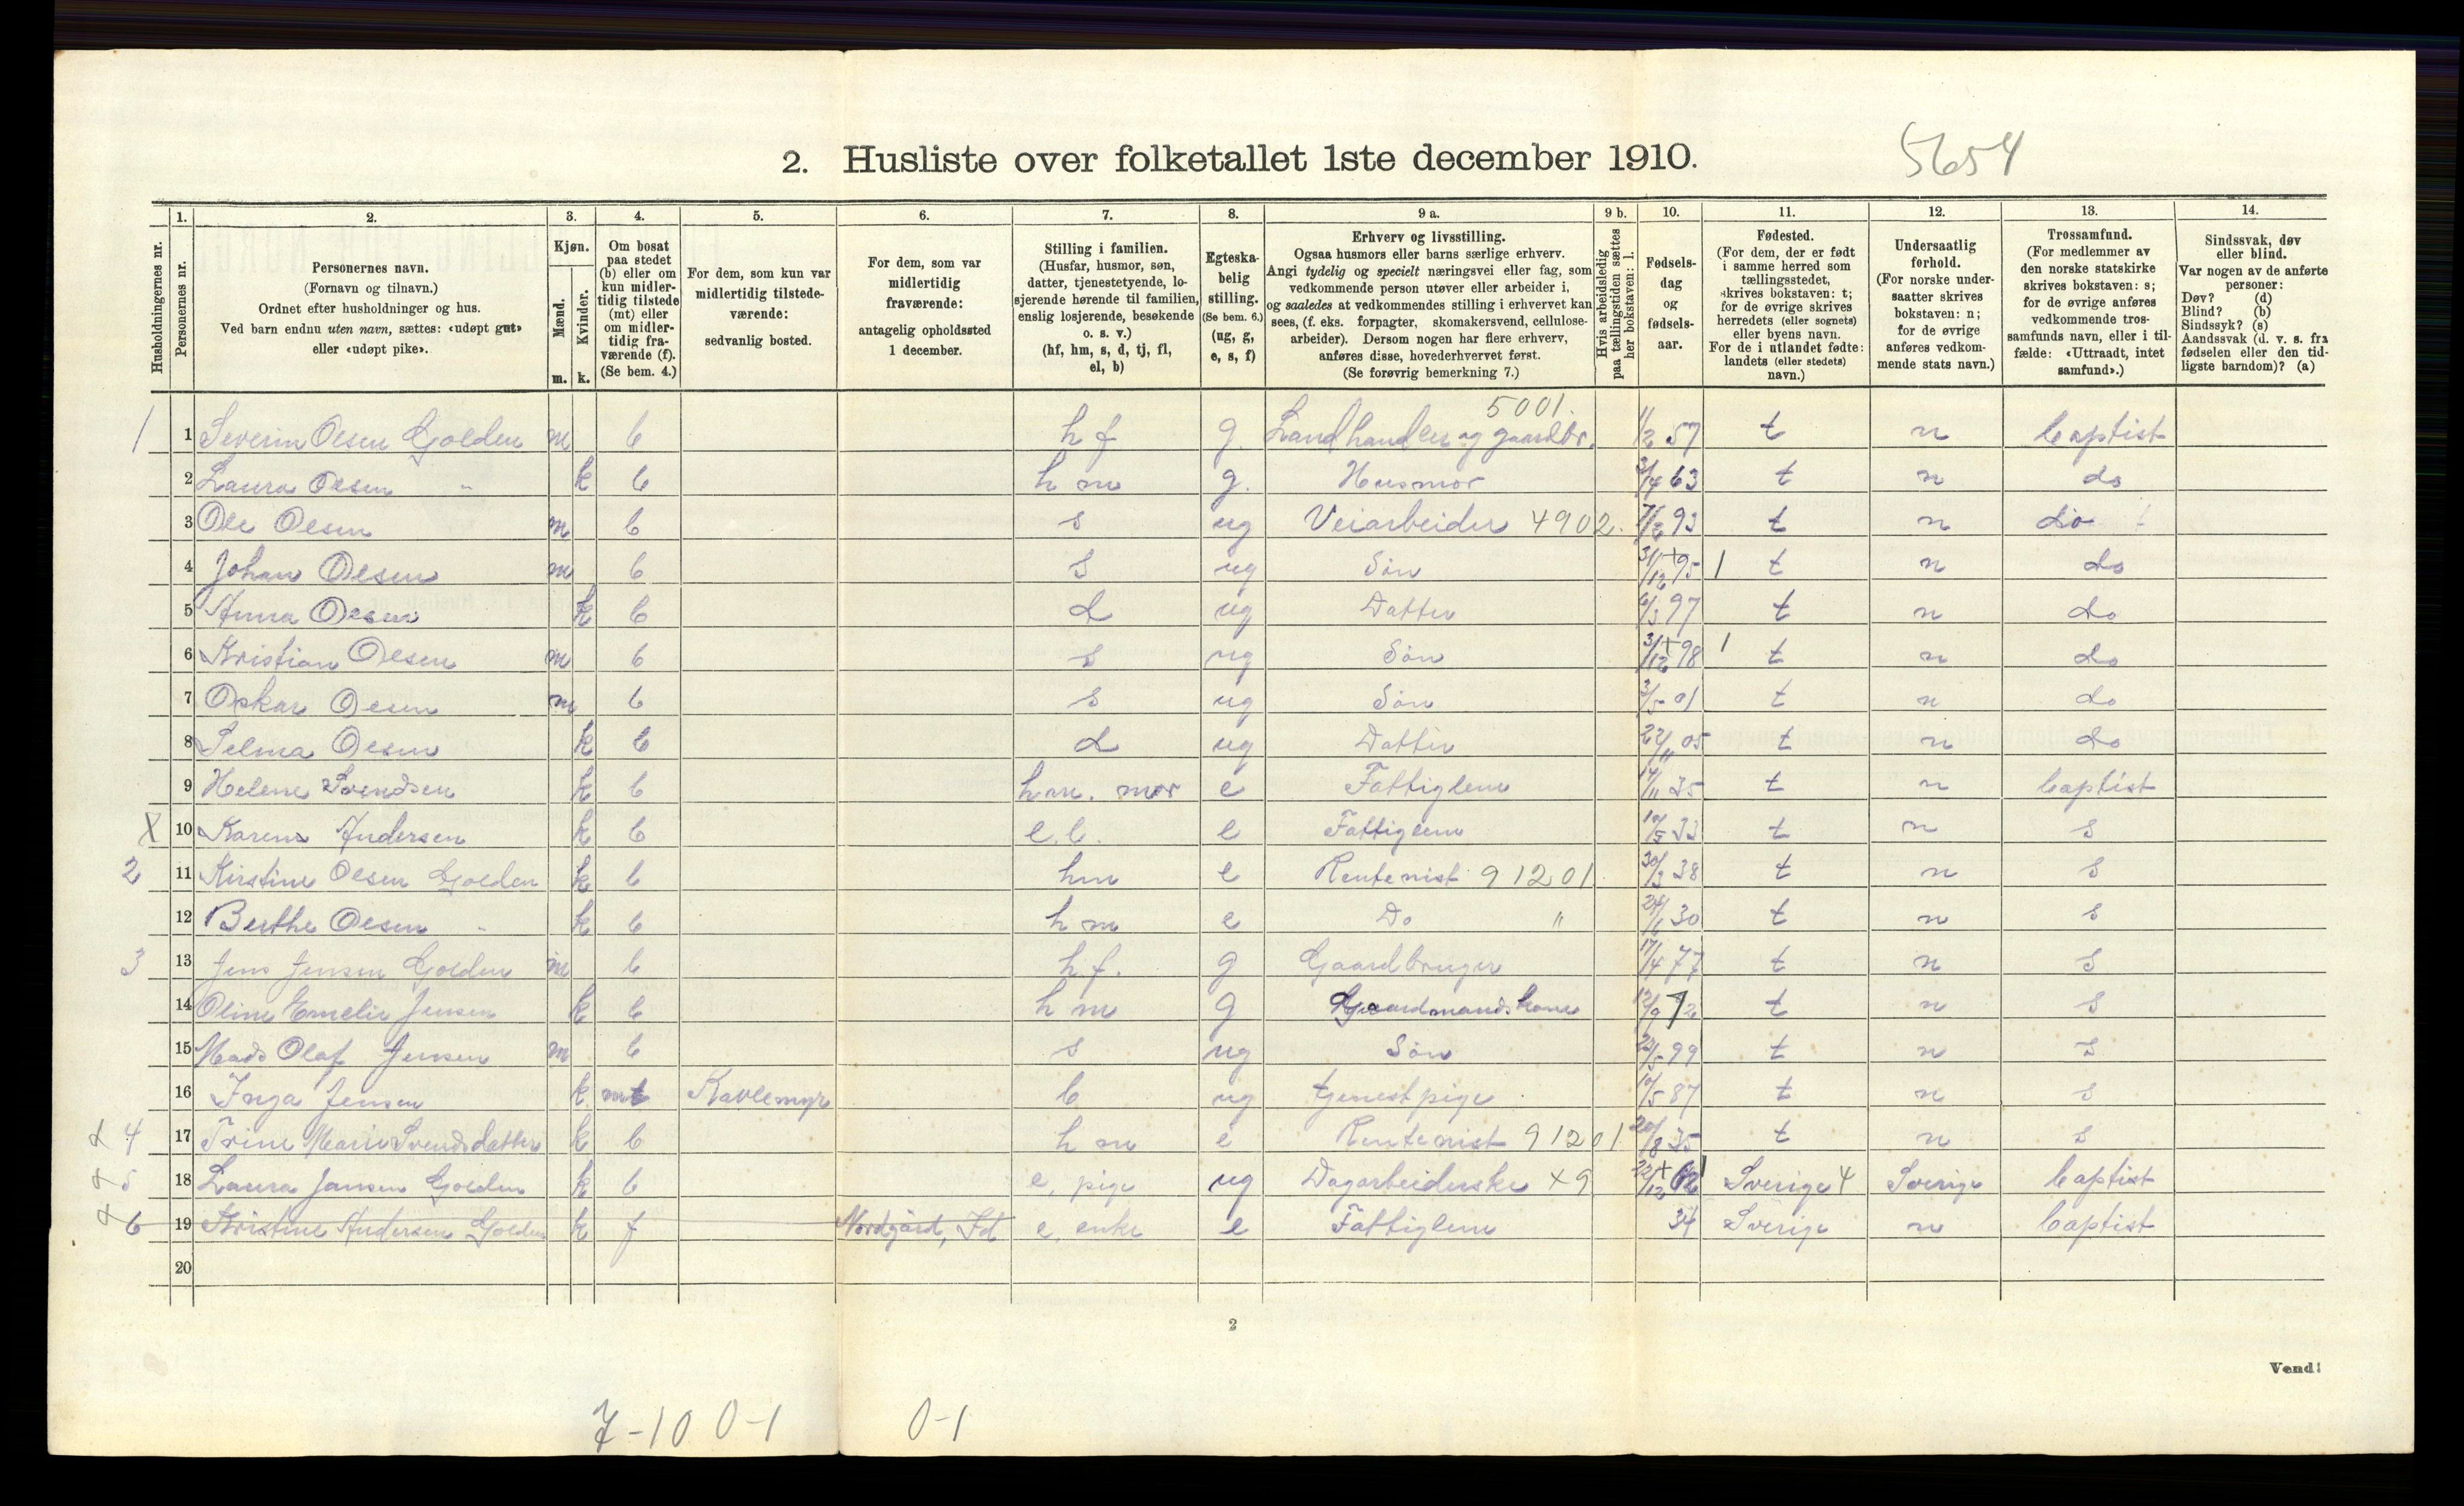 2. Husliste over folketallet 1ste december 1910.
5654
Husholdningernes nr.
1. Personernes nr.
2. Personernes navn.
(Fornavn og tilnavn.)
Ordnet efter husholdninger og hus.
Ved barn endnu uten navn, sættes: «udøpt gut»
eller «udøpt pike».
3. Kjøn.
Mænd. Kvinder.
m. k.
4. Om bosat
paa stedet
(b) eller om
kun midler-
tidig tilstede
(mt) eller
om midler-
tidig fra-
værende (f).
(Se bem. 4.)
5. For dem, som kun var
midlertidig tilstede-
værende:
sedvanlig bosted.
6. For dem, som var
midlertidig
fraværende:
antagelig opholdssted
1 december.
7. Stilling i familien.
(Husfar, husmor, søn,
datter, tjenestetyende, lo-
sjerende hørende til familien,
enslig losjerende, besøkende
o. s. v.)
(hf, hm, s, d, tj, fl,
el, b)
8. Egteska-
belig
stilling.
(Se bem. 6.)
(ug, g,
e, s, f)
9 a. Erhverv og livsstilling.
Ogsaa husmors eller barns særlige erhverv.
Angi tydelig og specielt næringsvei eller fag, som
vedkommende person utøver eller arbeider i,
og saaledes at vedkommendes stilling i erhvervet kan
sees, (f. eks. forpagter, skomakersvend, cellulose-
arbeider). Dersom nogen har flere erhverv,
anføres disse, hovederhvervet først.
(Se forøvrig bemerkning 7.)
9 b. Hvis arbeidsledig
paa tællingstiden sættes
her bokstaven: l.
10. Fødsels-
dag
og
fødsels-
aar.
11. Fødested.
(For dem, der er født
i samme herred som
tællingsstedet,
skrives bokstaven: t;
for de øvrige skrives
herredets (eller sognets)
eller byens navn.
For de i utlandet fødte:
landets (eller stedets)
navn.)
12. Undersaatlig
forhold.
(For norske under-
saatter skrives
bokstaven: n;
for de øvrige
anføres vedkom-
mende stats navn.)
13. Trossamfund.
(For medlemmer av
den norske statskirke
skrives bokstaven: s;
for de øvrige anføres
vedkommende tros-
samfunds navn, eller i til-
fælde: «Uttraadt, intet
samfund».)
14. Sindssvak, døv
eller blind.
Var nogen av de anførte
personer:
Døv? (d)
Blind? (b)
Sindssyk? (s)
Aandssvak (d. v. s. fra
fødselen eller den tid-
ligste barndom)? (a)
5001.
1 1 Severin Olsen Golden m b hf g. Landhandler og gaardbr. 1/2 57 t n baptist
2 Laura Olsen " k b hm g. Husmor 3/4 63 t n do
3 Ole Olsen m b s ug Veiarbeider 4902. 7/2 93 t n do
4 Johan Olsen m b s ug Søn 31/12 95 1 t n do
5 Anna Olsen k b d ug Datter 6/3 97 t n do
6 Kristian Olsen m b s ug Søn 31/12 98 1 t n do
7 Oskar Olsen m b s ug Søn 3/5 01 t n do
8 Selma Olsen k b d ug Datter 22/11 05 t n do
9 Helene Svendsen k b mor e Fattiglem 14/11 35 t n baptist
X 10 Karen Andersen k b e.l. e Fattiglem 10/5 33 t n s
2 11 Kirstine Olsen Golden k b hm e Rentenist 91201 30/3 38 t n s
12 Berthe Olsen " k b hm e Do " 30 t n s
3 13 Jens Jensen Golden m b hf. g Gaardbruger 17/4 77 t n s
14 Oline Emelie Jensen k b hm g Gaardmandskone 12/9 72 t n s
15 Mads Olaf Jensen m b s ug Søn 22/5 99 t n s
16 Inga Jensen k mt Kavlemyr b ug tjenestpige 10/5 87 t n s
x 4 17 Trine Marie Svendsdatter k b hm e Rentenist 91201 20/8 35 t n s
x 5 18 Laura Jansen Golden k b e. pige ug Dagarbeiderske x9 22/12 Sverige 4 Sverige baptist
x 6 19 Kristine Andersen Golden k f Nordgård, Id e. enke e Fattiglem 34 Sverige n baptist
20
2
Vend!
7-10 0-1 0-1